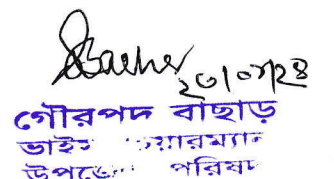 ২৩/০৭/২৪
গৌরপদ বাছাড়
ভাইস চেয়ারম্যান
উপজেলা পরিষদ